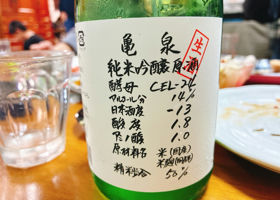 亀泉
生
純米吟醸原酒
酵母 CEL-24
アルコール分 14%
日本酒度 -13
酸度 1.8
アミノ酸 1.0
原材料名 米(国産)
米麹(国産米)
精米歩合 50%